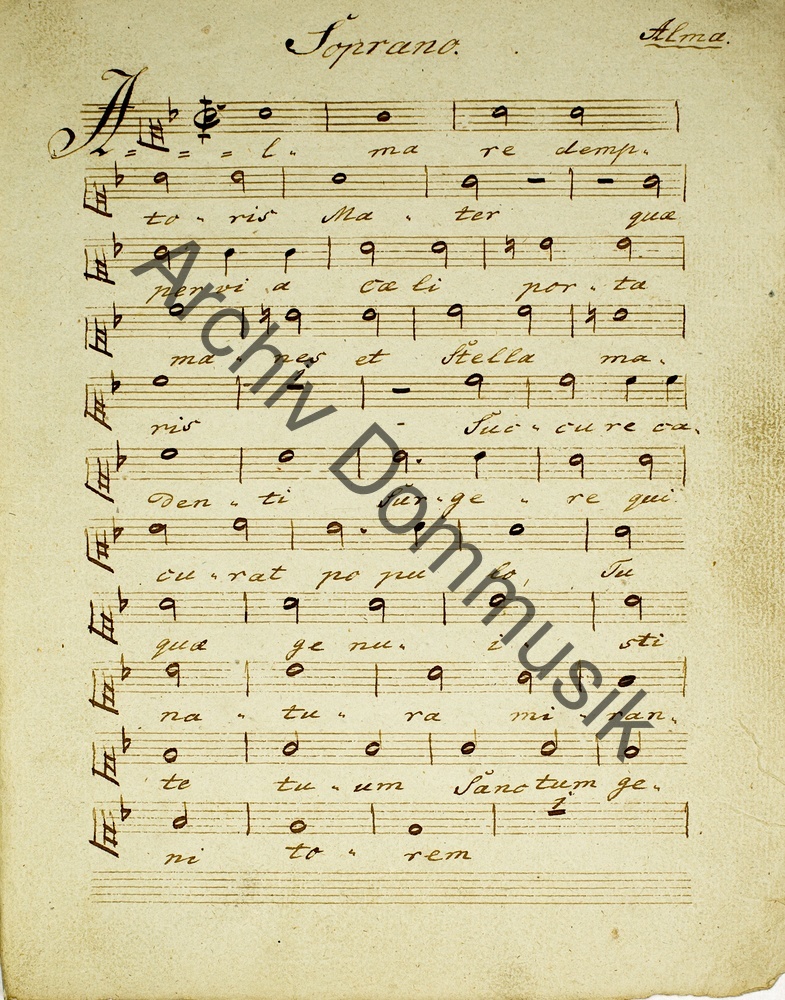 Soprano.
Alma.
A = = = l - ma re demp -
to - ris Ma - ter quæ
per vi a cæ li por - ta
ma - nes et Stella ma -
ris - Suc - cu re ca -
den - ti Sur - ge - re qui
cu - rat po pu lo, Tu
quæ ge nu - i - sti
na - tu - ra mi - ran -
te tu - um Sanctum ge -
1
ni to - rem
Archiv Dommusik